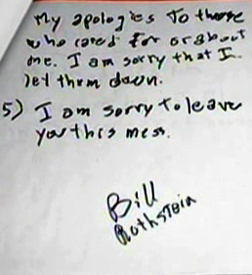 My apologies to those
who cared for or about
me. I am sorry that I
let them down.
5) I am sorry to leave
you this mess.
Bill
Rothstein